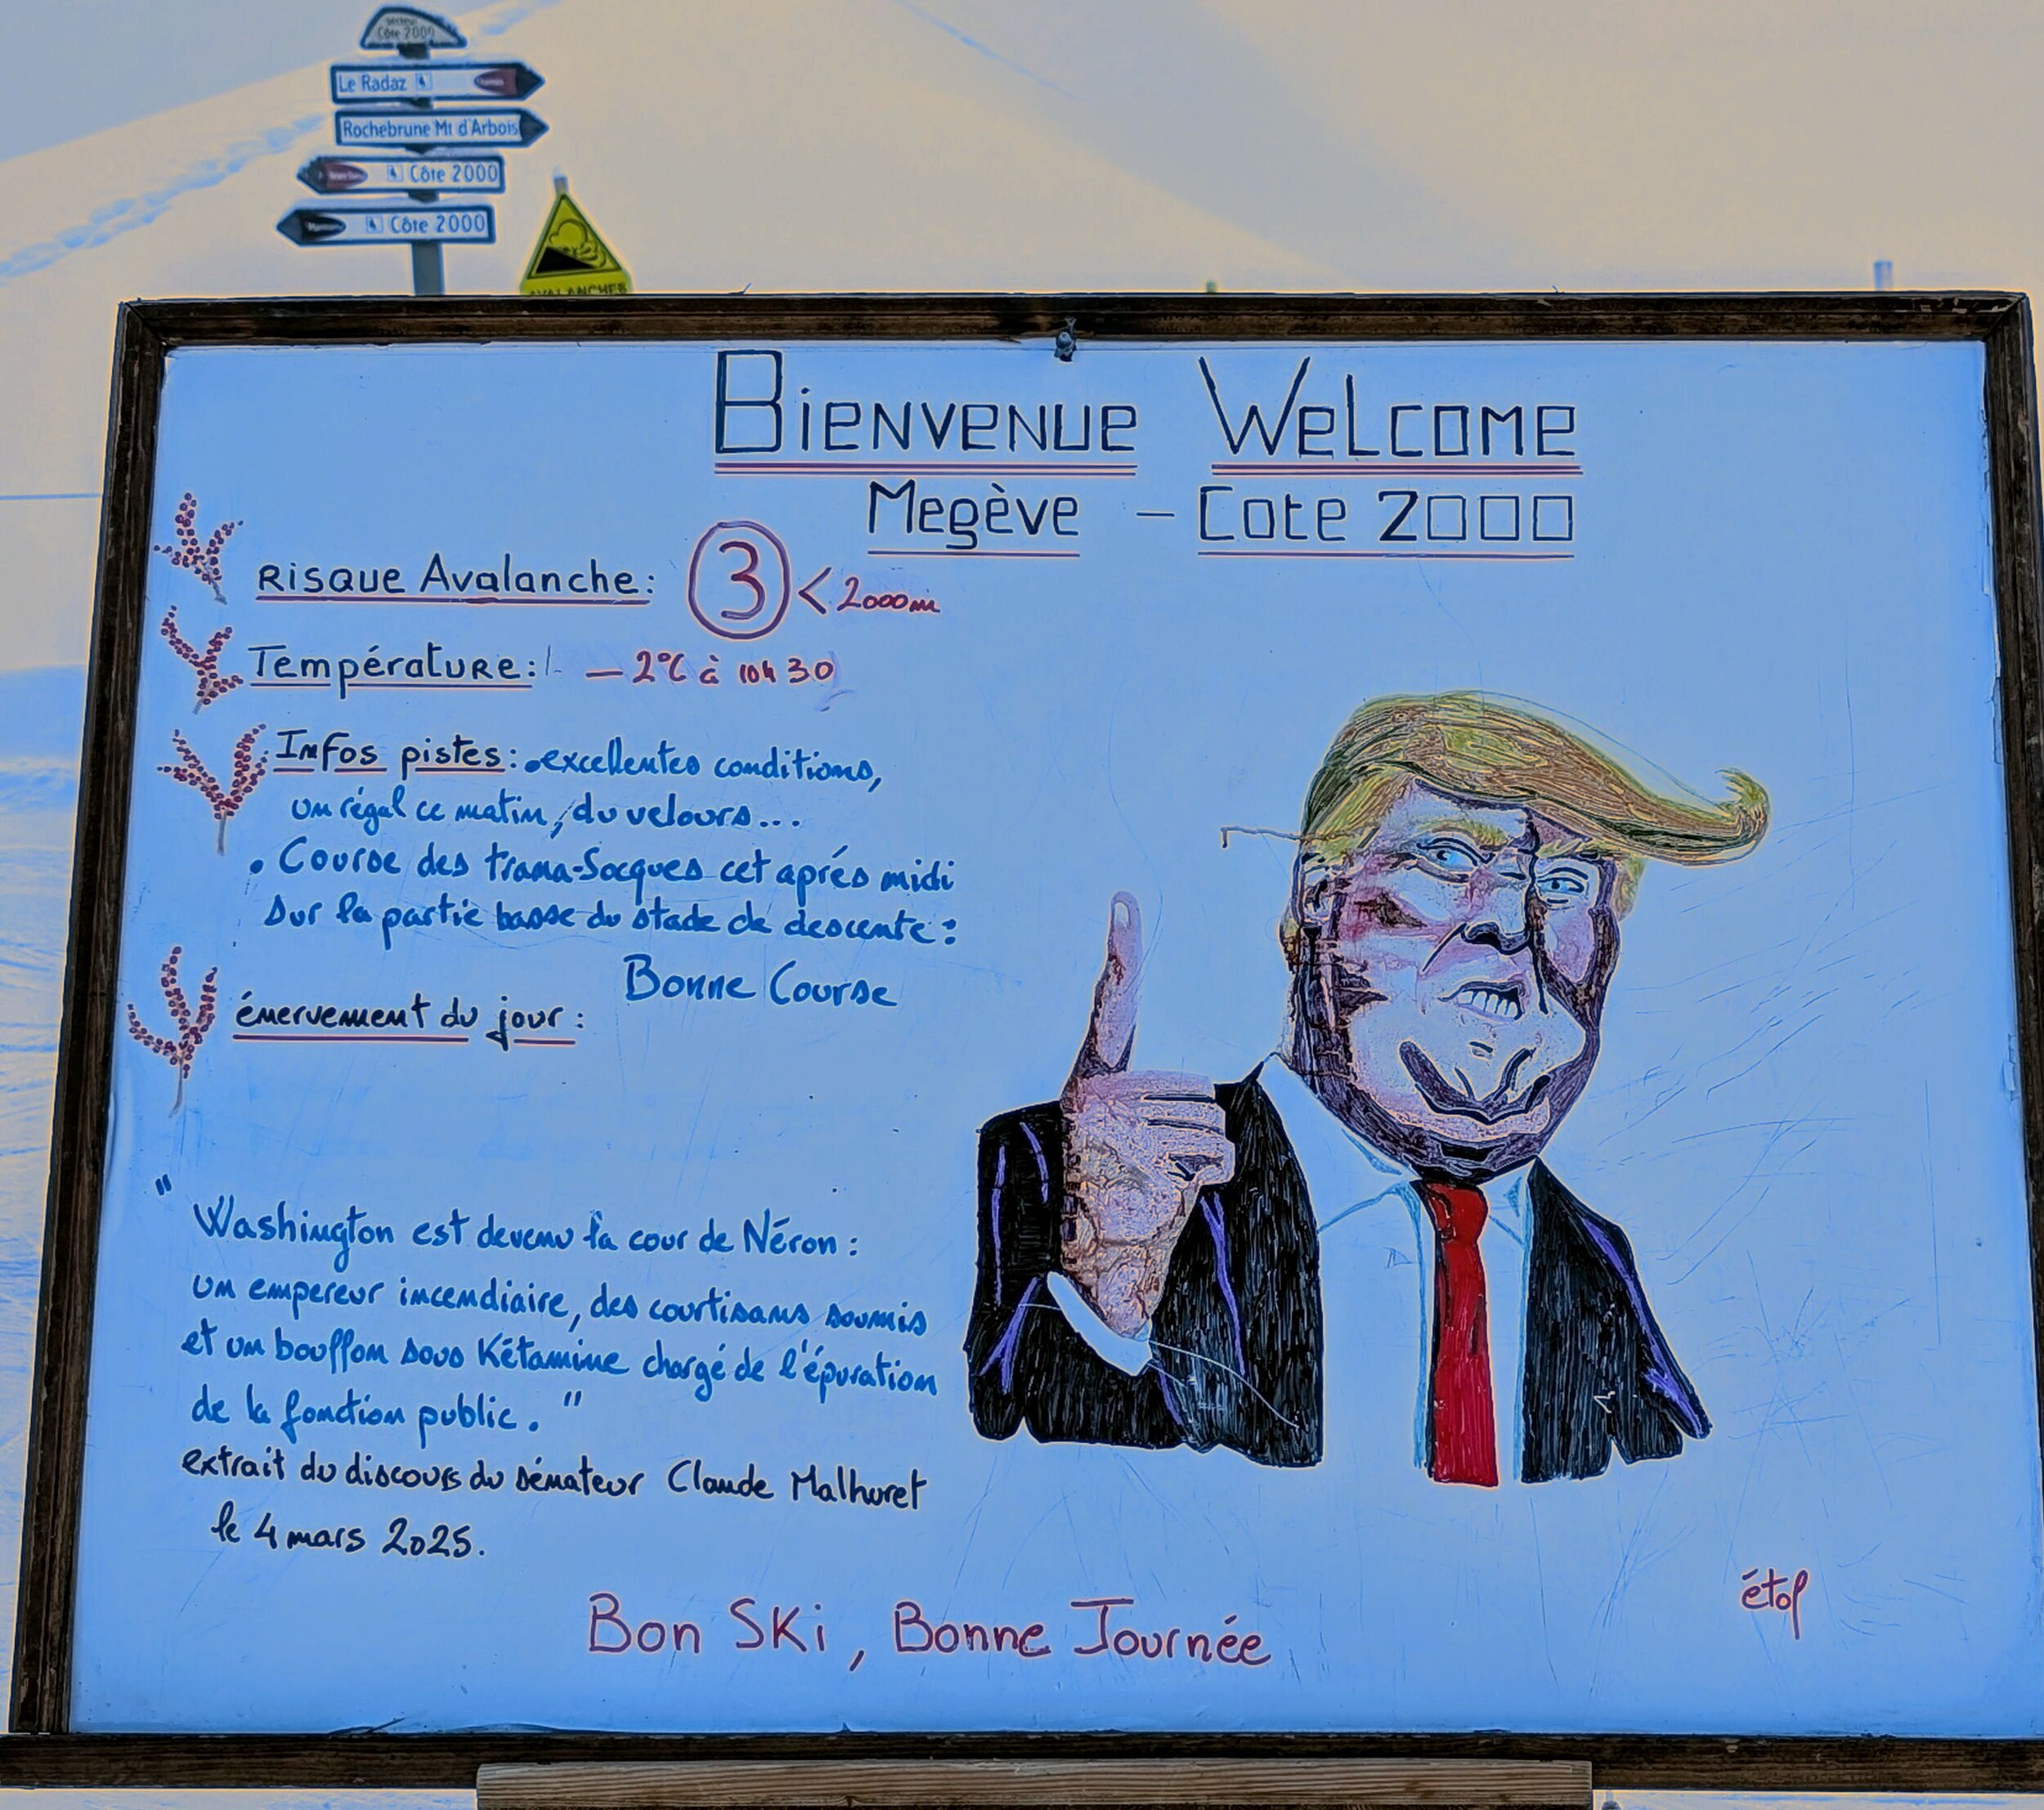 Secteur
Côte 2000
Le Radaz
Rochebrune Mt d'Arbois
Côte 2000
Côte 2000
AVALANCHES
Bienvenue Welcome
Megève - Cote 2000
Risque Avalanche: 3 < 2000m
Température: - 2°C à 10h30
Infos pistes: • excellentes conditions,
un régal ce matin, du velours...
• Course des trans-Socques cet après midi
sur la partie basse du stade de descente:
Bonne Course
énervement du jour:
"
Washington est devenu la cour de Néron:
un empereur incendiaire, des courtisans soumis
et un bouffon sous Kétamine chargé de l'épuration
de la fonction public. "
extrait du discours du sénateur Claude Malhuret
le 4 mars 2025.
Bon Ski, Bonne Journée
étof